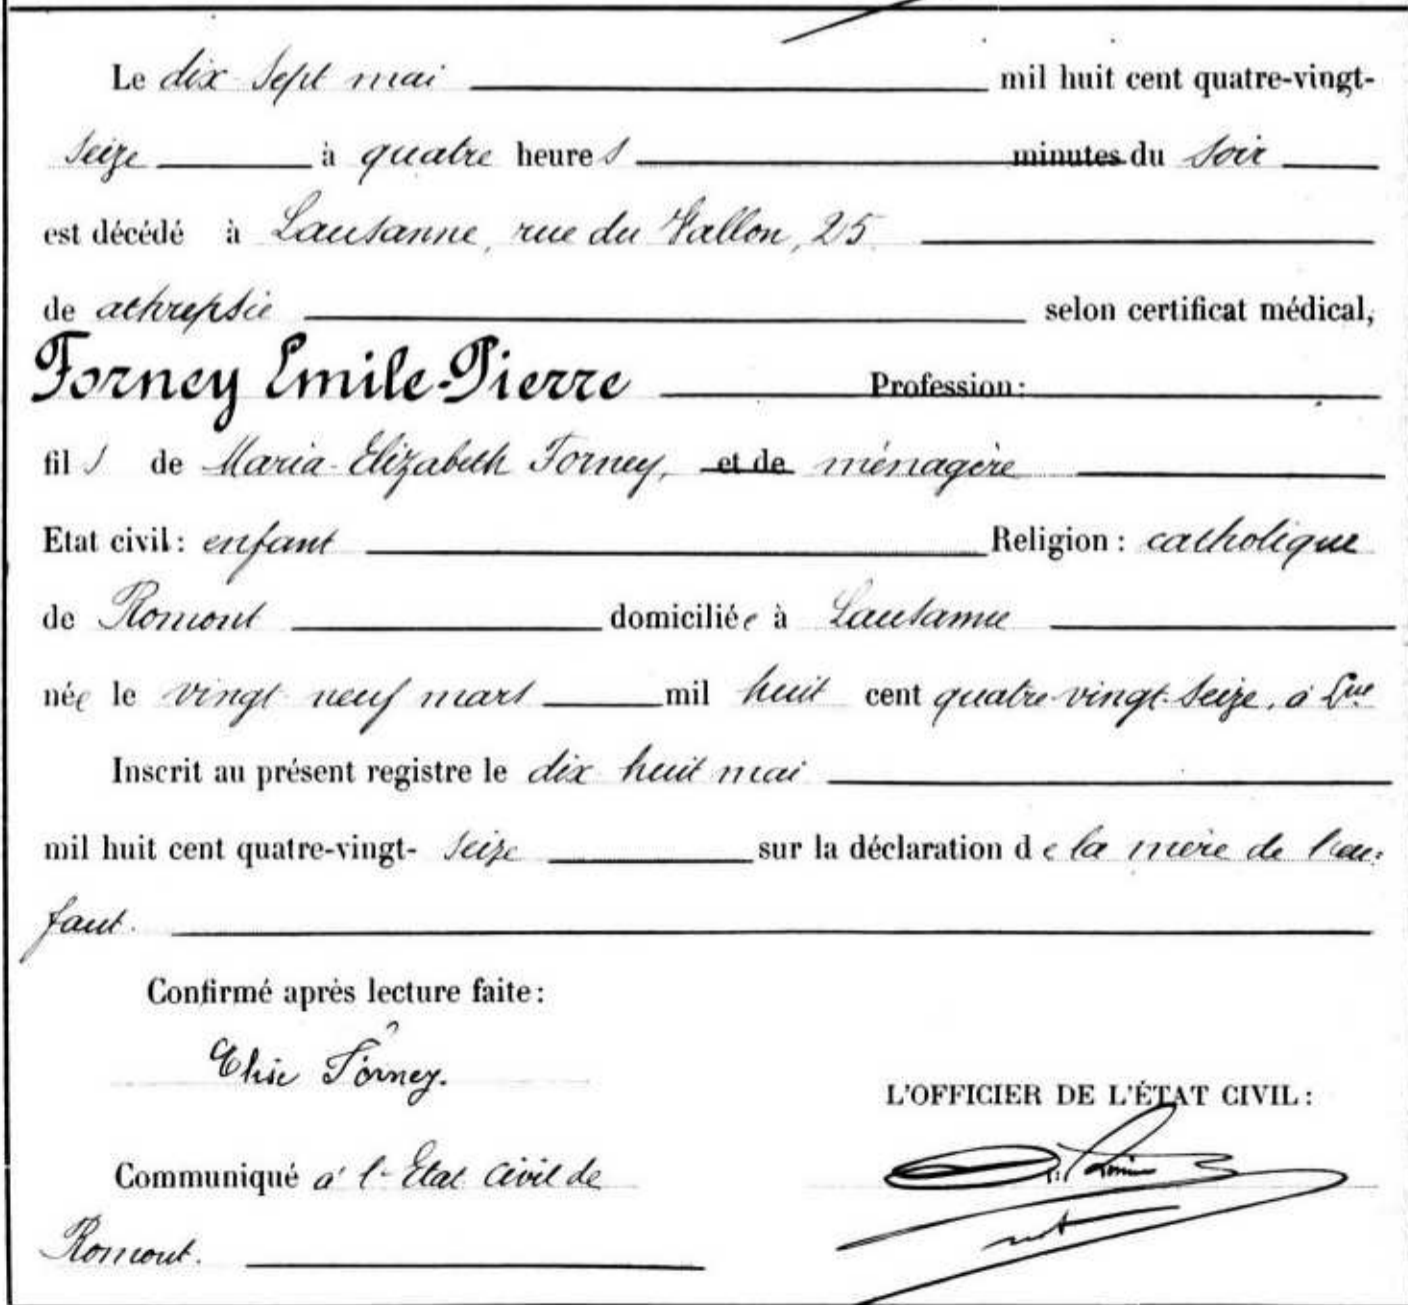 Le dix-sept mai mil huit cent quatre-vingt-
seize à quatre heures minutes du soir
est décédé à Lausanne, rue du Vallon, 25
de athrepsie selon certificat médical,
Forney Emile-Pierre Profession:
fils de Maria-Elizabeth Forney, et de ménagère
Etat civil: enfant Religion: catholique
de Romont domiciliée à Lausanne
née le vingt-neuf mars mil huit cent quatre-vingt-seize, à Lne
Inscrit au présent registre le dix huit mai
mil huit cent quatre-vingt- seize sur la déclaration de la mère de l'en-
fant.
Confirmé après lecture faite:
Elise Forney.
L'OFFICIER DE L'ÉTAT CIVIL:
Communiqué à l'Etat civil de
Romont.